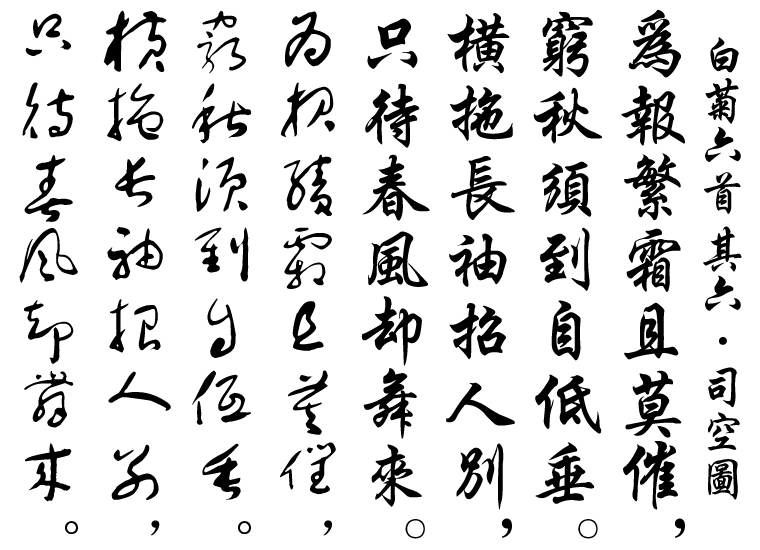 白菊六首其六・司空圖
為報繁霜且莫催，
窮秋須到自低垂○
橫拖長袖招人別，
只待春風却舞來○
為報繁霜且莫催，
窮秋須到自低垂。
橫拖長袖招人別，
只待春風却舞來。